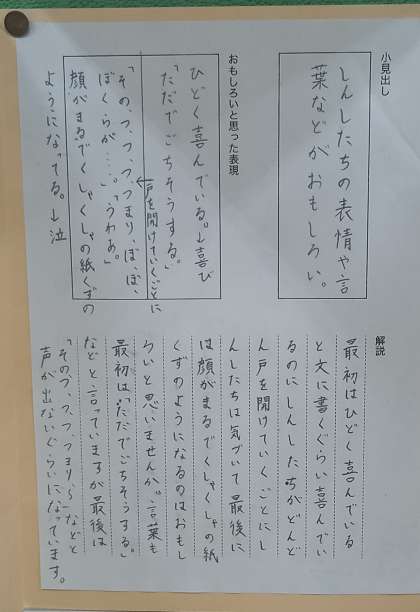 小見出し
しんしたちの表情や言
葉などがおもしろい。
おもしろいと思った表現
ひどく喜んでいる。→喜び
「ただでごちそうする。」
↓戸を開けていくごとに
「そのつ、つ、つ、つまり、ぼ、ぼ、
ぼくらが……。」「うわあ。」
顔がまるでくしゃくしゃの紙くずの
ようになってる。→泣
解説
最初はひどく喜んでいる
と文に書くぐらい喜んでい
るのにしんしたちがどんど
ん戸を開けていくごとにし
んしたちは気づいて最後に
は顔がまるでくしゃくしゃの紙
くずのようになるのはおもし
ろいと思いませんか。言葉も
最初は「ただでごちそうする。」
などと言っていますが最後は
「そのつ、つ、つ、つまり、〜」などと
声が出ないぐらいになっています。